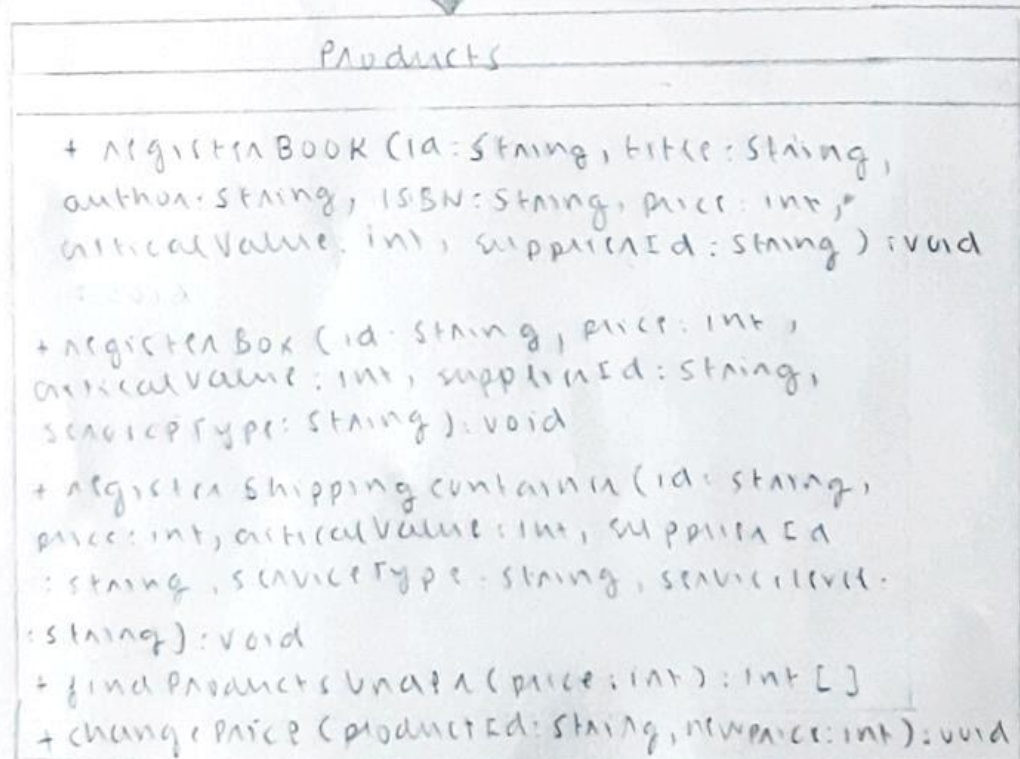 Products
+ registerBOOK (id: String, title: String,
author: String, ISBN: String, price: int,
criticalValue: int, supplierId: String ) : void
: void
+ registerBox (id: String, price: int,
criticalvalue: int, supplierId: String,
serviceType: String): void
+ register Shipping container (id: string,
price: int, criticalValue: int, supplierId
: string, serviceType: string, servicelevel:
: string): void
+ findProductsUnder (price: int): int []
+ changePrice (productId: String, newprice: int): void